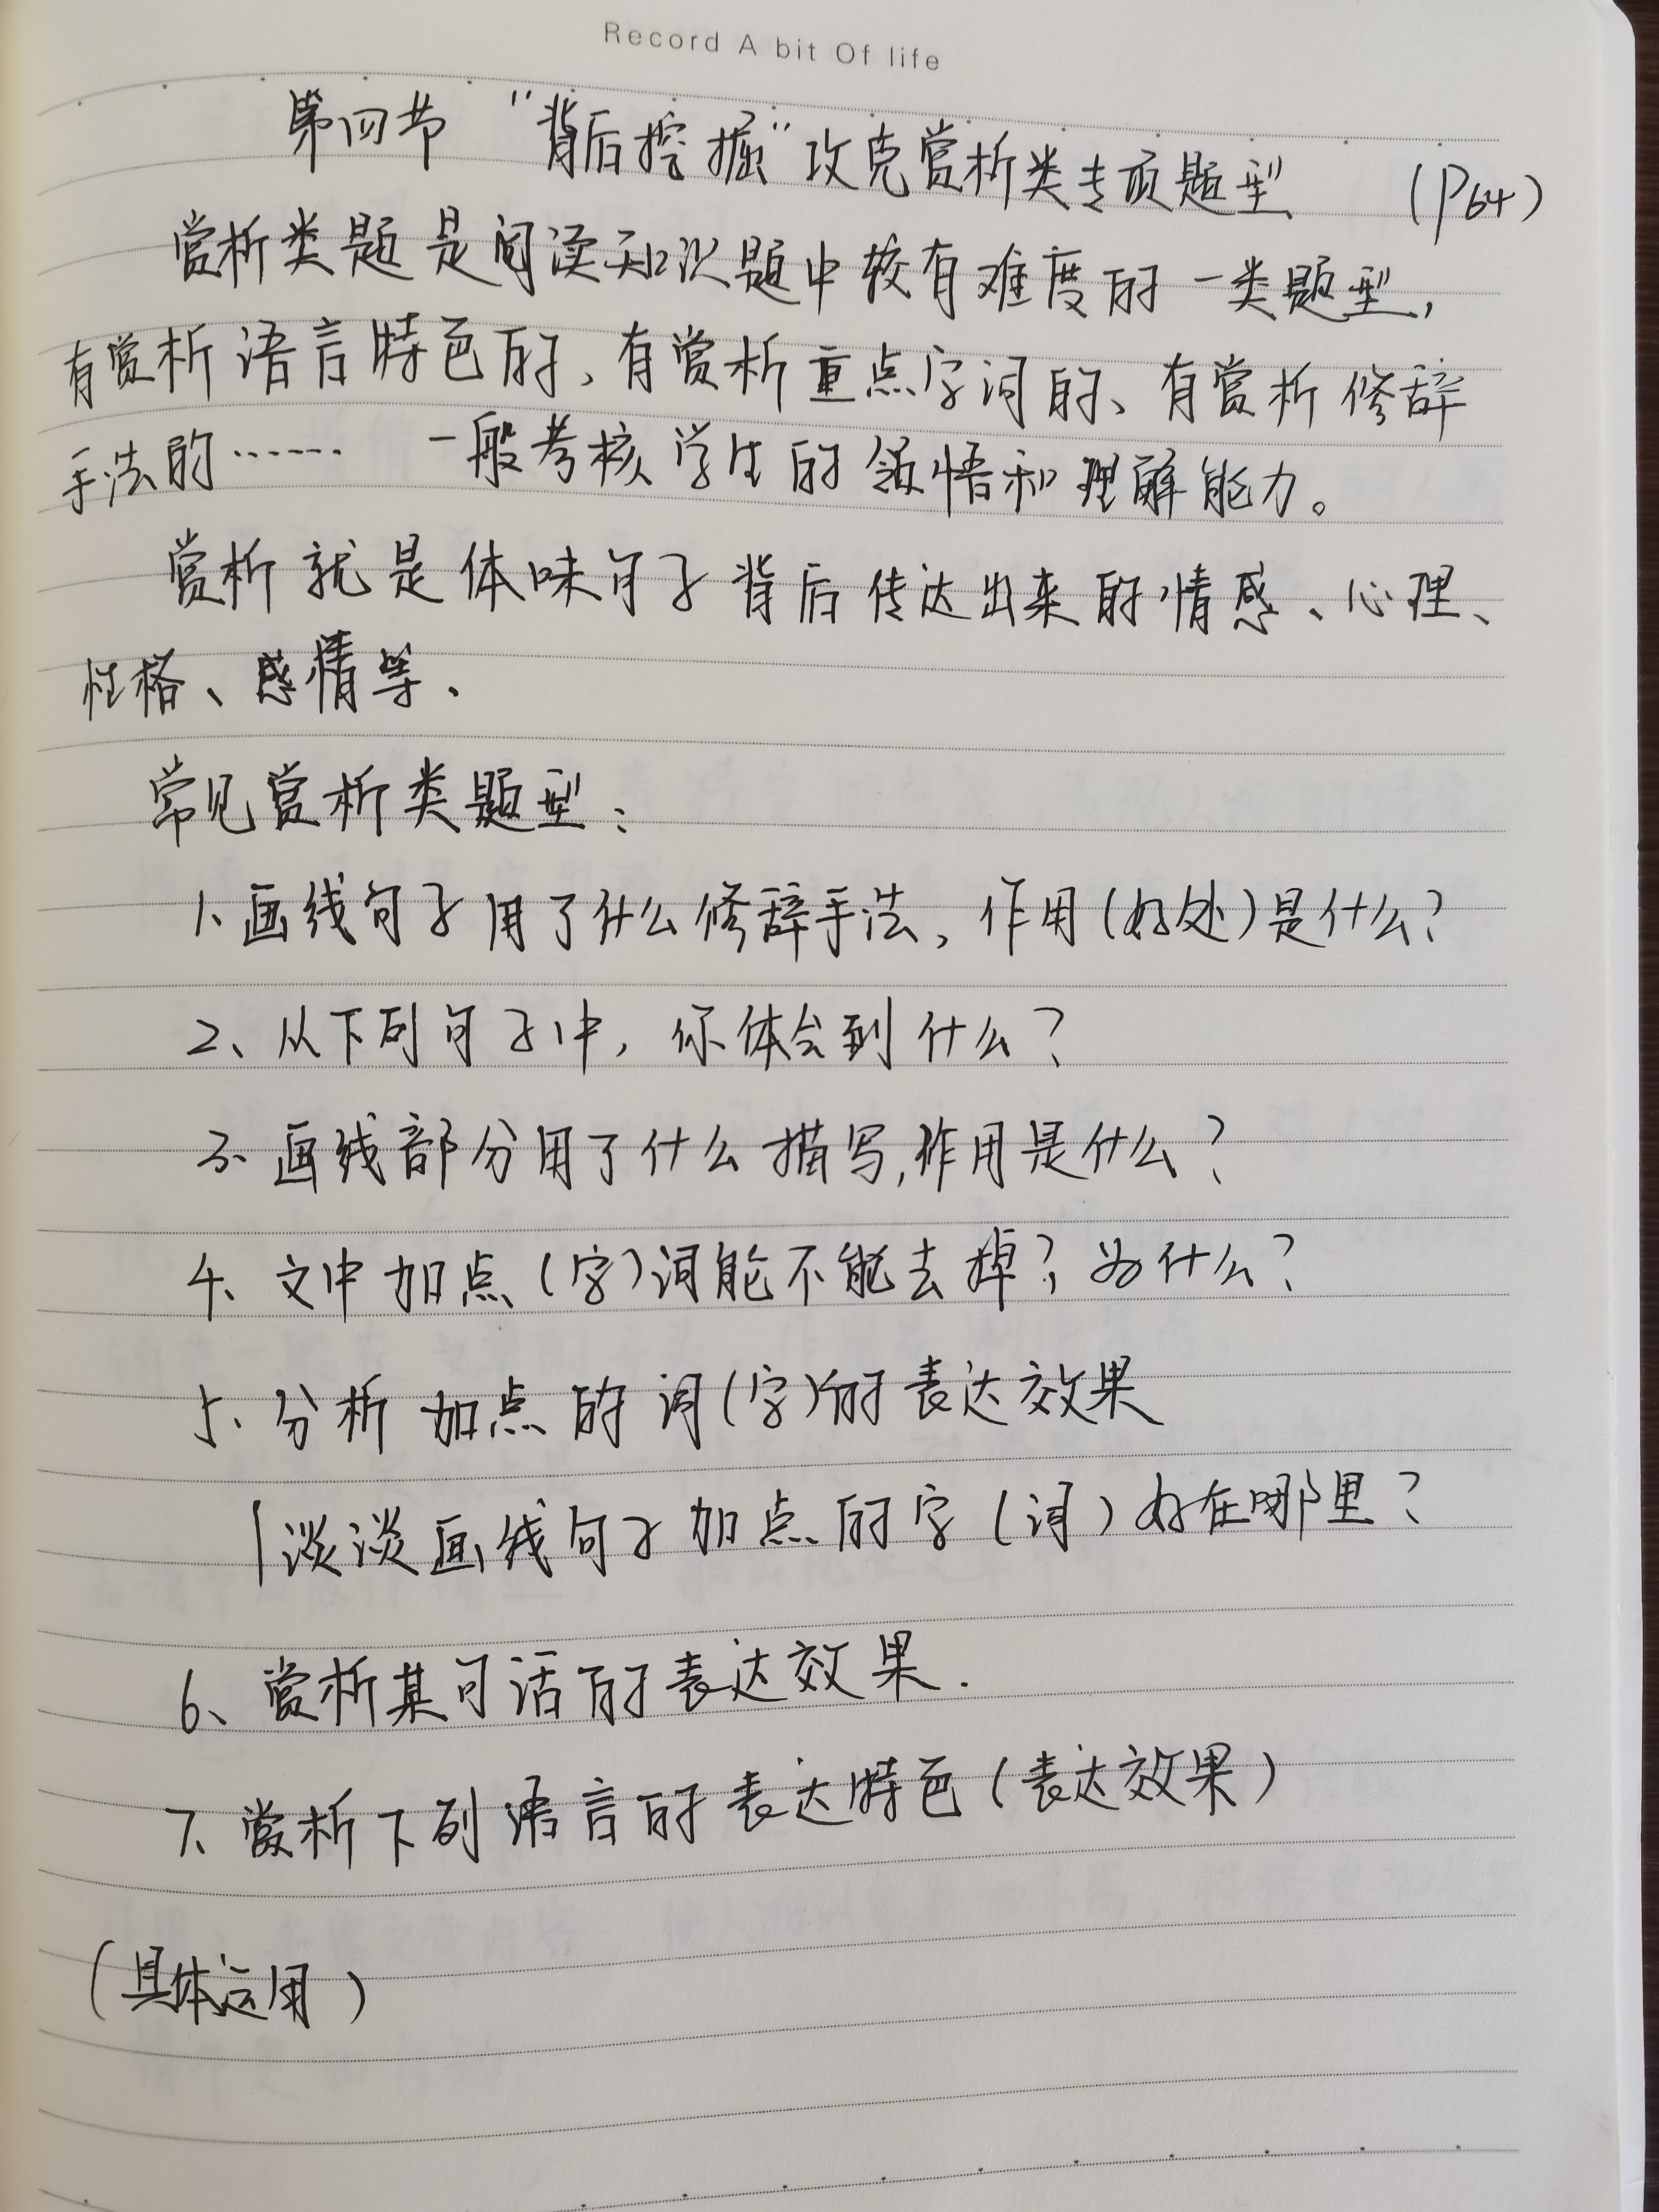 Record A bit Of life
第四节 “背后挖掘”攻克赏析类专项题型 (P64)
赏析类题是阅读知识题中较有难度的一类题型,
有赏析语言特色的、有赏析重点字词的、有赏析修辞
手法的…… 一般考核学生的领悟和理解能力。
赏析就是体味句子背后传达出来的情感、心理、
性格、感情等.
常见赏析类题型:
1、画线句子用了什么修辞手法,作用(好处)是什么?
2、从下列句子中,你体会到什么?
3、画线部分用了什么描写,作用是什么?
4、文中加点(字)词能不能去掉?为什么?
5、分析加点的词(字)的表达效果
|淡淡画线句子加点的字(词)好在哪里?
6、赏析某句话的表达效果.
7、赏析下列语言的表达特色(表达效果)
(具体运用)